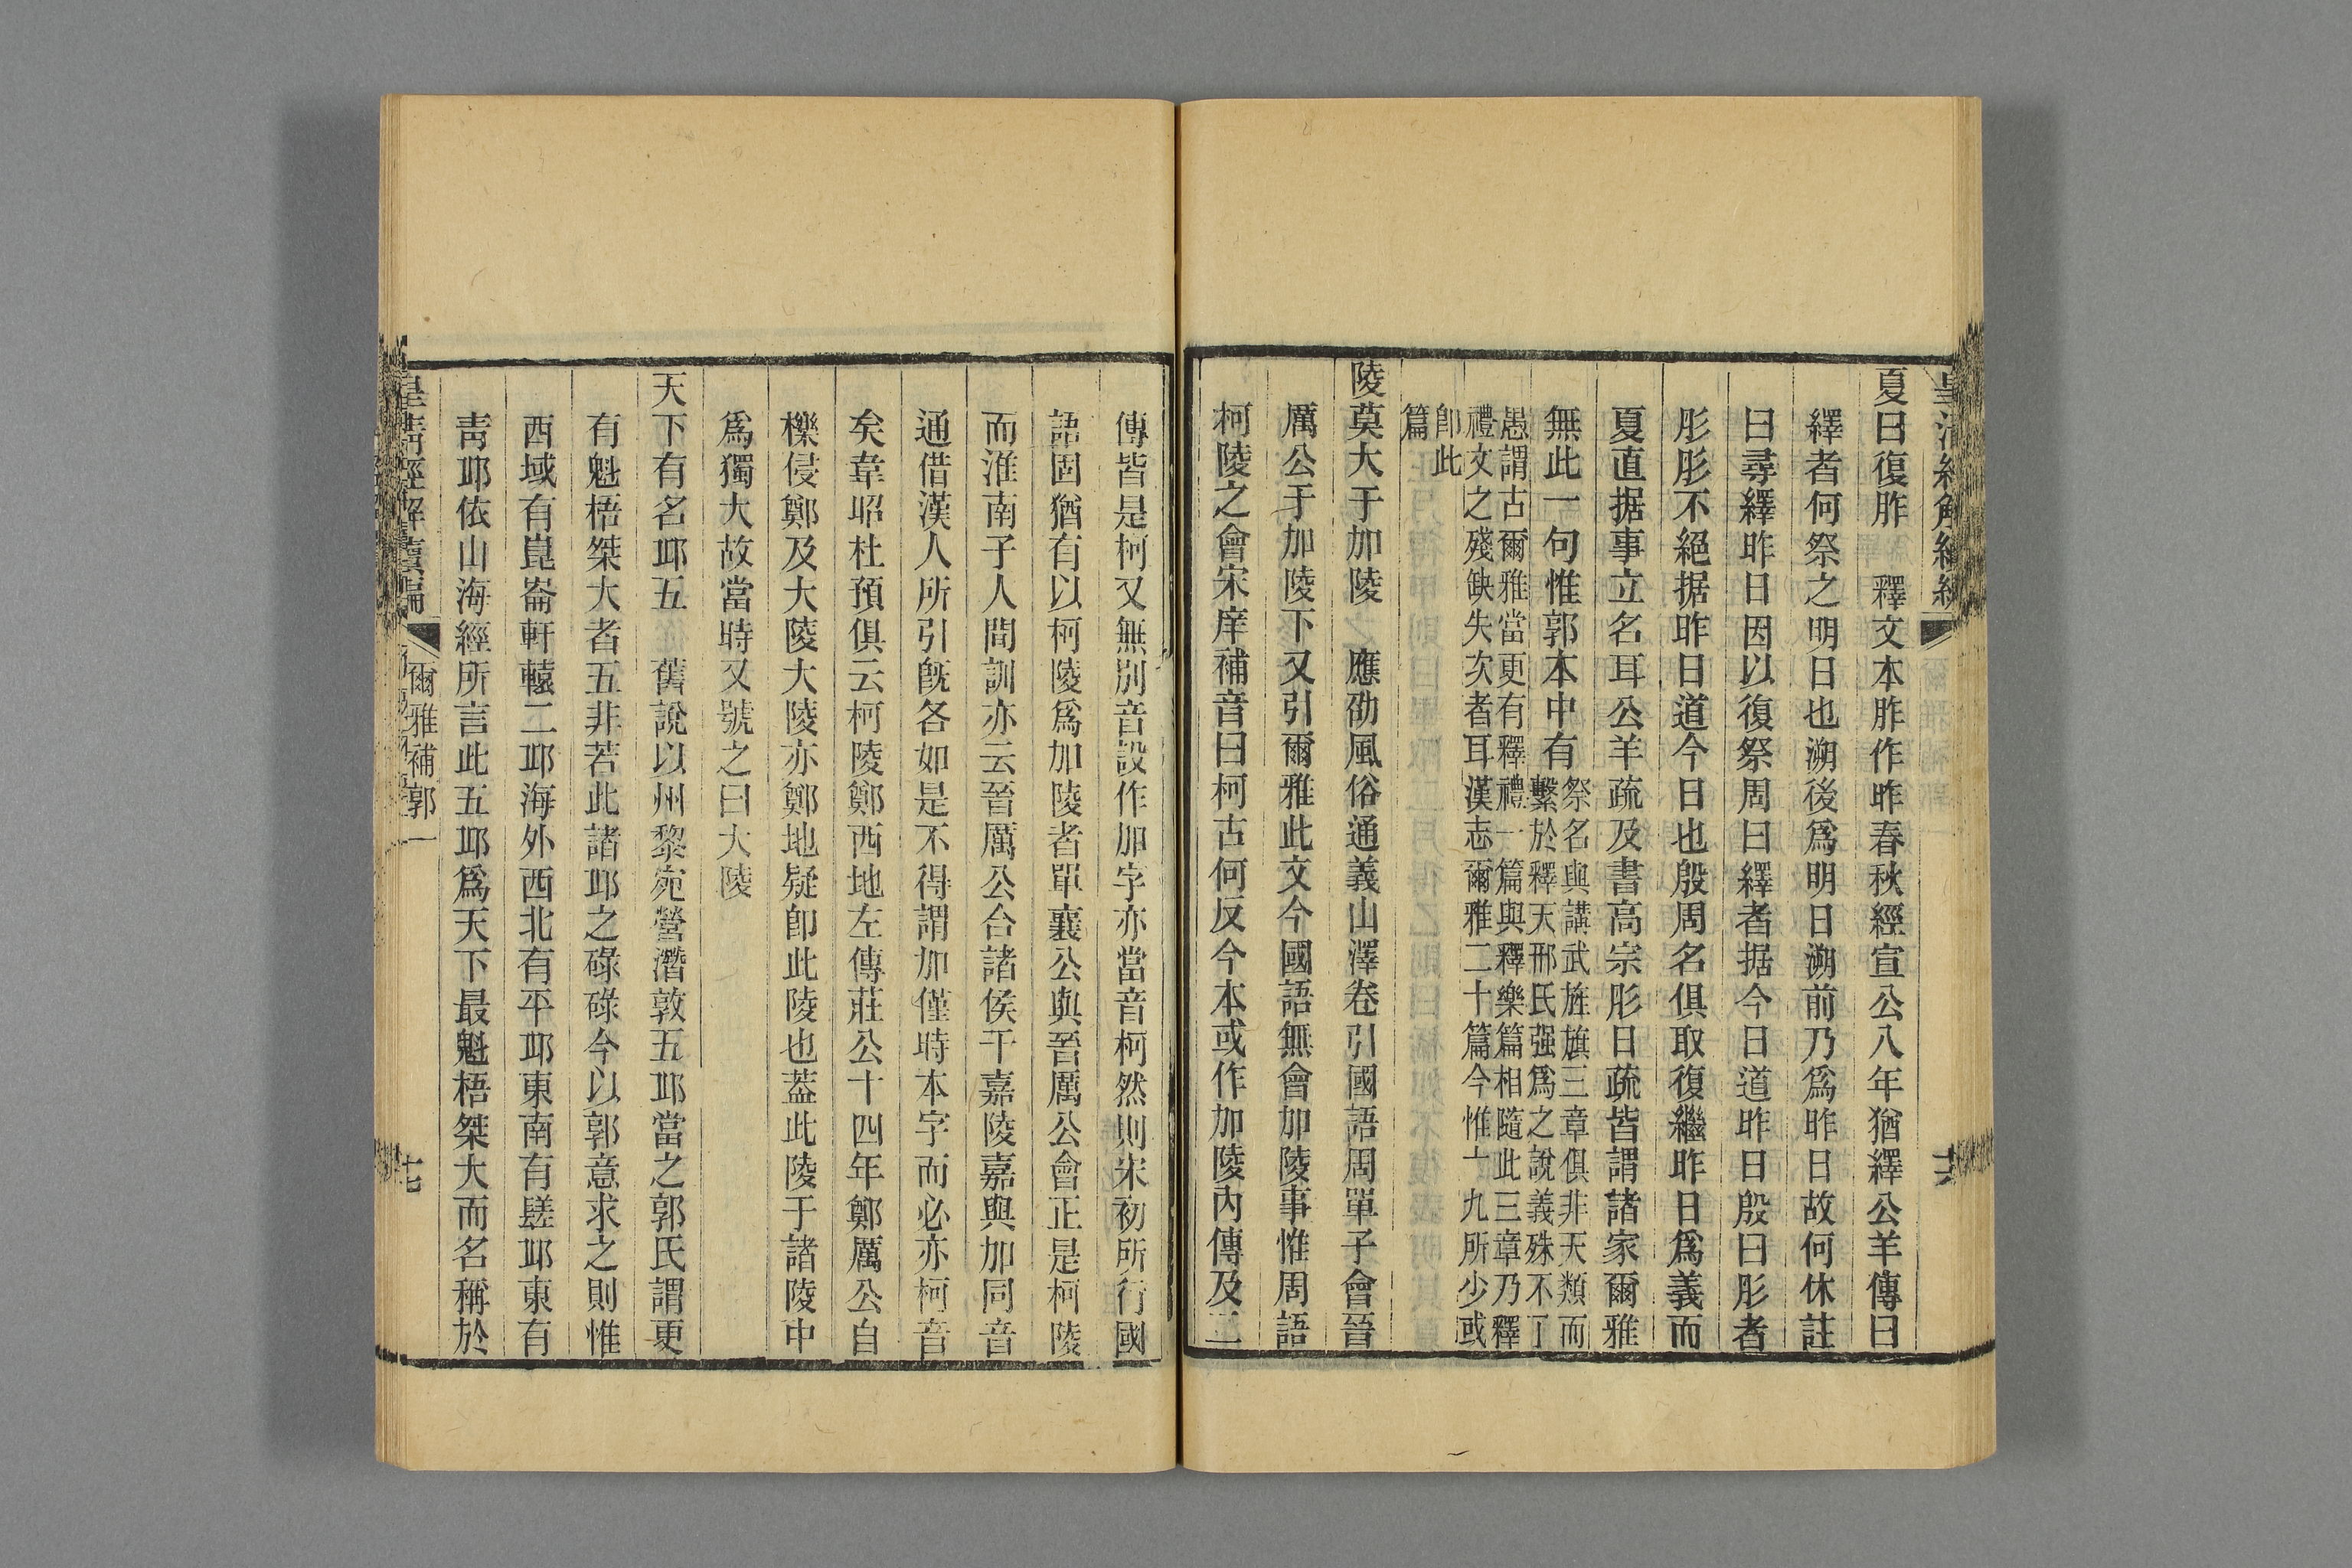 夏曰復胙　釋文本胙作昨春秋經宣公八年猶繹公羊傳曰
繹者何祭之明日也溯後爲明日溯前乃爲昨日故何休註
曰尋繹昨日因以復祭周曰繹者据今日道昨日殷曰肜者
肜肜不絕据昨日道今日也殷周名俱取復繼昨日爲義而
夏直据事立名耳公羊疏及書高宗肜日疏皆謂諸家爾雅
無此一句惟郭本中有
祭名與講武旌旗三章俱非天類而
繫於釋天邢氏强爲之說義殊不了
愚謂古爾雅當更有釋禮一篇與釋樂篇相隨此三章乃釋
禮文之殘缺失次者耳漢志爾雅二十篇今惟十九所少或
卽此
篇
陵莫大于加陵　應劭風俗通義山澤卷引國語周單子會晉
厲公于加陵下又引爾雅此文今國語無會加陵事惟周語
柯陵之會宋庠補音曰柯古何反今本或作加陵內傳及二
傳皆是柯又無別音設作加字亦當音柯然則宋初所行國
語固猶有以柯陵爲加陵者單襄公與晉厲公會正是柯陵
而淮南子人間訓亦云晉厲公合諸侯于嘉陵嘉與加同音
通借漢人所引旣各如是不得謂加僅時本字而必亦柯音
矣韋昭杜預俱云柯陵鄭西地左傳莊公十四年鄭厲公自
櫟侵鄭及大陵大陵亦鄭地疑卽此陵也蓋此陵于諸陵中
爲獨大故當時又號之曰大陵
天下有名邱五　舊說以州黎宛營潛敦五邱當之郭氏謂更
有魁梧桀大者五非若此諸邱之碌碌今以郭意求之則惟
西域有崑崙軒轅二邱海外西北有平邱東南有𨲠邱東有
靑邱依山海經所言此五邱爲天下最魁梧桀大而名稱於
皇淸經解續編
爾雅補郭一
十七